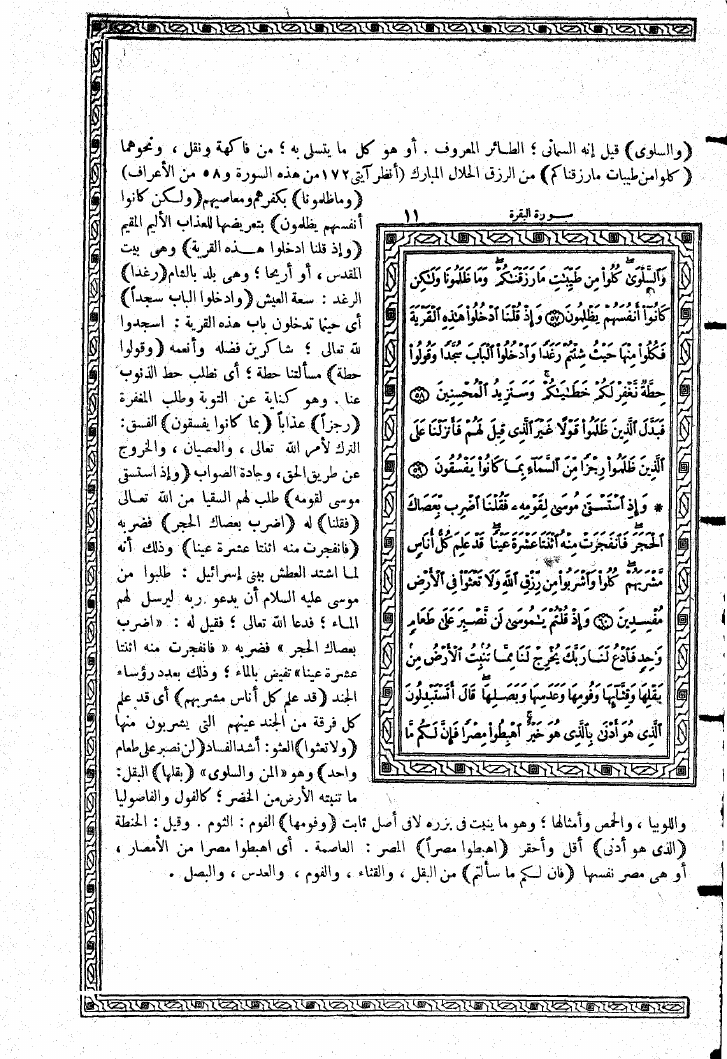 (والسلوى) قيل إنه السمانى ؛ الطائر المعروف . أو هو كل ما يتسلى به ؛ من فاكهة ونقل ، ونحوهما
(كلوا من طيبات مارزقناكم) من الرزق الحلال المبارك (أنظر آيتى ١٧٢ من هذه السورة و ٥٨ من الأعراف)
(وماظلمونا) بكفرهم ومعاصيهم (ولكن كانوا
أنفسهم يظلمون) بتعريضها للعذاب الأليم المقيم
(وإذ قلنا ادخلوا هـذه القرية) وهى بيت
المقدس ، أو أريحا ؛ وهى بلد بالشام (رغدا)
الرغد : سعة العيش (وادخلوا الباب سجداً)
أى حينما تدخلون باب هذه القرية : اسجدوا
لله تعالى ؛ شاكرين فضله وأنعمه (وقولوا
حطة) مسألتنا حطة ؛ أى نطلب حط الذنوب
عنا . وهو كناية عن التوبة وطلب المغفرة
(رجزاً) عذاباً (بما كانوا يفسقون) الفسق :
الترك لأمر الله تعالى ، والعصيان ، والخروج
عن طريق الحق ، وجادة الصواب (وإذ استسقى
موسى لقومه) طلب لهم السقيا من الله تعـالى
(فقلنا) له (اضرب بعصاك الحجر) فضربه
(فانفجرت منه اثنتا عشرة عينا) وذلك أنه
لمـا اشتد العطش ببنى إسرائيل : طلبوا من
موسى عليه السلام أن يدعو ربه ليرسل لهم
المـاء ؛ فدعا الله تعالى ؛ فقيل له : «اضرب
بعصاك الحجر» فضربه «فانفجرت منه اثنتا
عشرة عينا» تفيض بالماء ؛ وذلك بعدد رؤساء
الجند (قد علم كل أناس مشربهم) أى قد علم
كل فرقة من الجند عينهم التى يشربون منها
(ولا تعثوا) العثو : أشد الفساد (لن نصبر على طعام
واحد) وهو «المن والسلوى» (بقلها) البقل :
ما تنبته الأرض من الخضر ؛ كالفول والفاصوليا
سـورة البقرة ١١
وَٱلسَّلْوَىٰ كُلُوا۟ مِن طَيِّبَـٰتِ مَا رَزَقْنَـٰكُمْ وَمَا ظَلَمُونَا وَلَـٰكِن
كَانُوٓا۟ أَنفُسَهُمْ يَظْلِمُونَ ٥٧ وَإِذْ قُلْنَا ٱدْخُلُوا۟ هَـٰذِهِ ٱلْقَرْيَةَ
فَكُلُوا۟ مِنْهَا حَيْثُ شِئْتُمْ رَغَدًا وَٱدْخُلُوا۟ ٱلْبَابَ سُجَّدًا وَقُولُوا۟
حِطَّةٌ نَّغْفِرْ لَكُمْ خَطَـٰيَـٰكُمْ وَسَنَزِيدُ ٱلْمُحْسِنِينَ ٥٨
فَبَدَّلَ ٱلَّذِينَ ظَلَمُوا۟ قَوْلًا غَيْرَ ٱلَّذِى قِيلَ لَهُمْ فَأَنزَلْنَا عَلَى
ٱلَّذِينَ ظَلَمُوا۟ رِجْزًا مِّنَ ٱلسَّمَآءِ بِمَا كَانُوا۟ يَفْسُقُونَ ٥٩
* وَإِذِ ٱسْتَسْقَىٰ مُوسَىٰ لِقَوْمِهِۦ فَقُلْنَا ٱضْرِب بِّعَصَاكَ
ٱلْحَجَرَ فَٱنفَجَرَتْ مِنْهُ ٱثْنَتَا عَشْرَةَ عَيْنًا قَدْ عَلِمَ كُلُّ أُنَاسٍ
مَّشْرَبَهُمْ كُلُوا۟ وَٱشْرَبُوا۟ مِن رِّزْقِ ٱللَّهِ وَلَا تَعْثَوْا۟ فِى ٱلْأَرْضِ
مُفْسِدِينَ ٦٠ وَإِذْ قُلْتُمْ يَـٰمُوسَىٰ لَن نَّصْبِرَ عَلَىٰ طَعَامٍ
وَٰحِدٍ فَٱدْعُ لَنَا رَبَّكَ يُخْرِجْ لَنَا مِمَّا تُنۢبِتُ ٱلْأَرْضُ مِنۢ
بَقْلِهَا وَقِثَّآئِهَا وَفُومِهَا وَعَدَسِهَا وَبَصَلِهَا قَالَ أَتَسْتَبْدِلُونَ
ٱلَّذِى هُوَ أَدْنَىٰ بِٱلَّذِى هُوَ خَيْرٌ ٱهْبِطُوا۟ مِصْرًا فَإِنَّ لَكُم مَّا
واللوبيا ، والحمص وأمثالها ؛ وهو ما ينبت فى بزره لا فى أصل ثابت (وفومها) الفوم : الثوم . وقيل : الحنطة
(الذى هو أدنى) أقل وأحقر (اهبطوا مصراً) المصر : العاصمة . أى اهبطوا مصرا من الأمصار ،
أو هى مصر نفسها (فان لـكم ما سألتم) من البقل ، والقثاء ، والفوم ، والعدس ، والبصل .